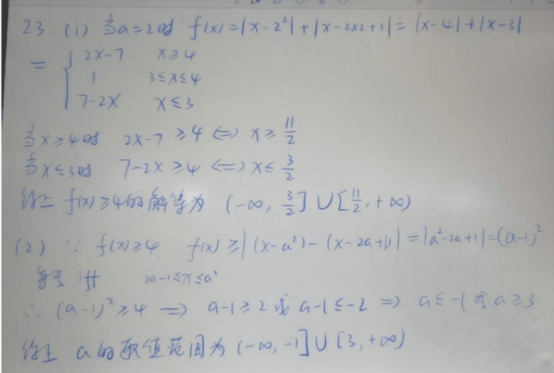 23. (1) 当a=2时 f(x)=|x-2²|+|x-2×2+1|=|x-4|+|x-3|
= { 2x-7 x≥4
1 3≤x≤4
7-2x x≤3
当x≥4时 2x-7≥4 ⇔ x≥11/2
当x≤3时 7-2x≥4 ⇔ x≤3/2
综上 f(x)≥4的解集为 (-∞, 3/2]∪[11/2, +∞)
(2) ∵ f(x)≥4 f(x)≥|(x-a²)-(x-2a+1)|=|a²-2a+1|=(a-1)²
等号 iff 2a-1≤x≤a²
∴ (a-1)²≥4 ⇒ a-1≥2 或 a-1≤-2 ⇒ a≤-1 或 a≥3
综上 a的取值范围为 (-∞, -1]∪[3, +∞)